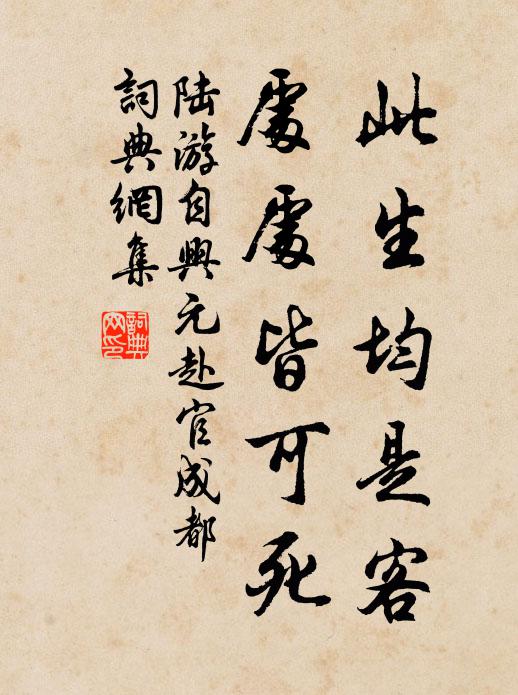 此生均是客
處處皆可死
陆游自興元赴官成都
詞典網集
詞典网印